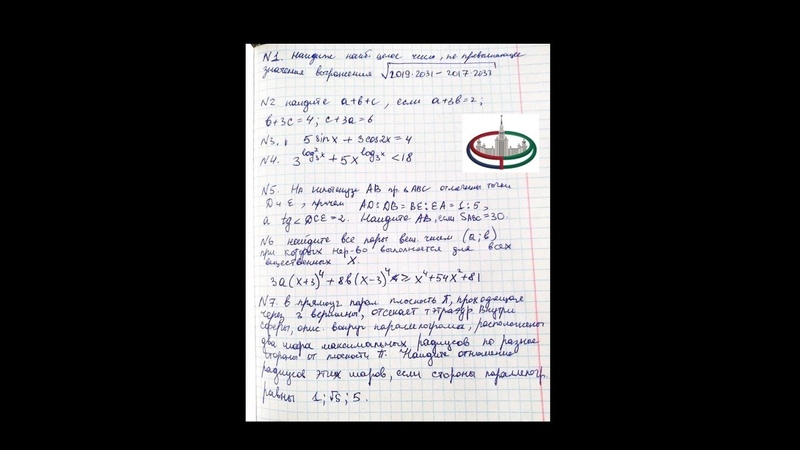 N1. Найдите наиб. целое число, не превышающее
значения выражения √2019·2031 – 2017·2033
N2 найдите a+b+c, если a+3b=2;
b+3c=4; c+3a=6
N3. 5 sinx + 3cos2x = 4
N4. 3^log₃²x + 5x^log₃x < 18
N5. На гипотенузе AB пр. Δ ABC отмечены точки
D и E, причем AD:DB = BE:EA = 1:5,
а tg∠DCE = 2. Найдите AB, если SABC = 30.
N6 найдите все пары вещ. чисел (a; b)
при которых нер-во выполняется для всех
вещественных X.
3a(x+3)⁴ + 8b(x–3)⁴ ≥ x⁴ + 54x² + 81
N7. В прямоуг парал. плоскость П, проходящая
через 3 вершины, отсекает тэтраэдр. Внутри
сферы, опис. вокруг параллелограмма, расположены
два шара максимальных радиусов по разные
стороны от плоскости П. Найдите отношение
радиусов этих шаров, если стороны параллелогр.
равны 1; √5; 5.